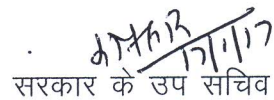 17/1/17
सरकार के उप सचिव